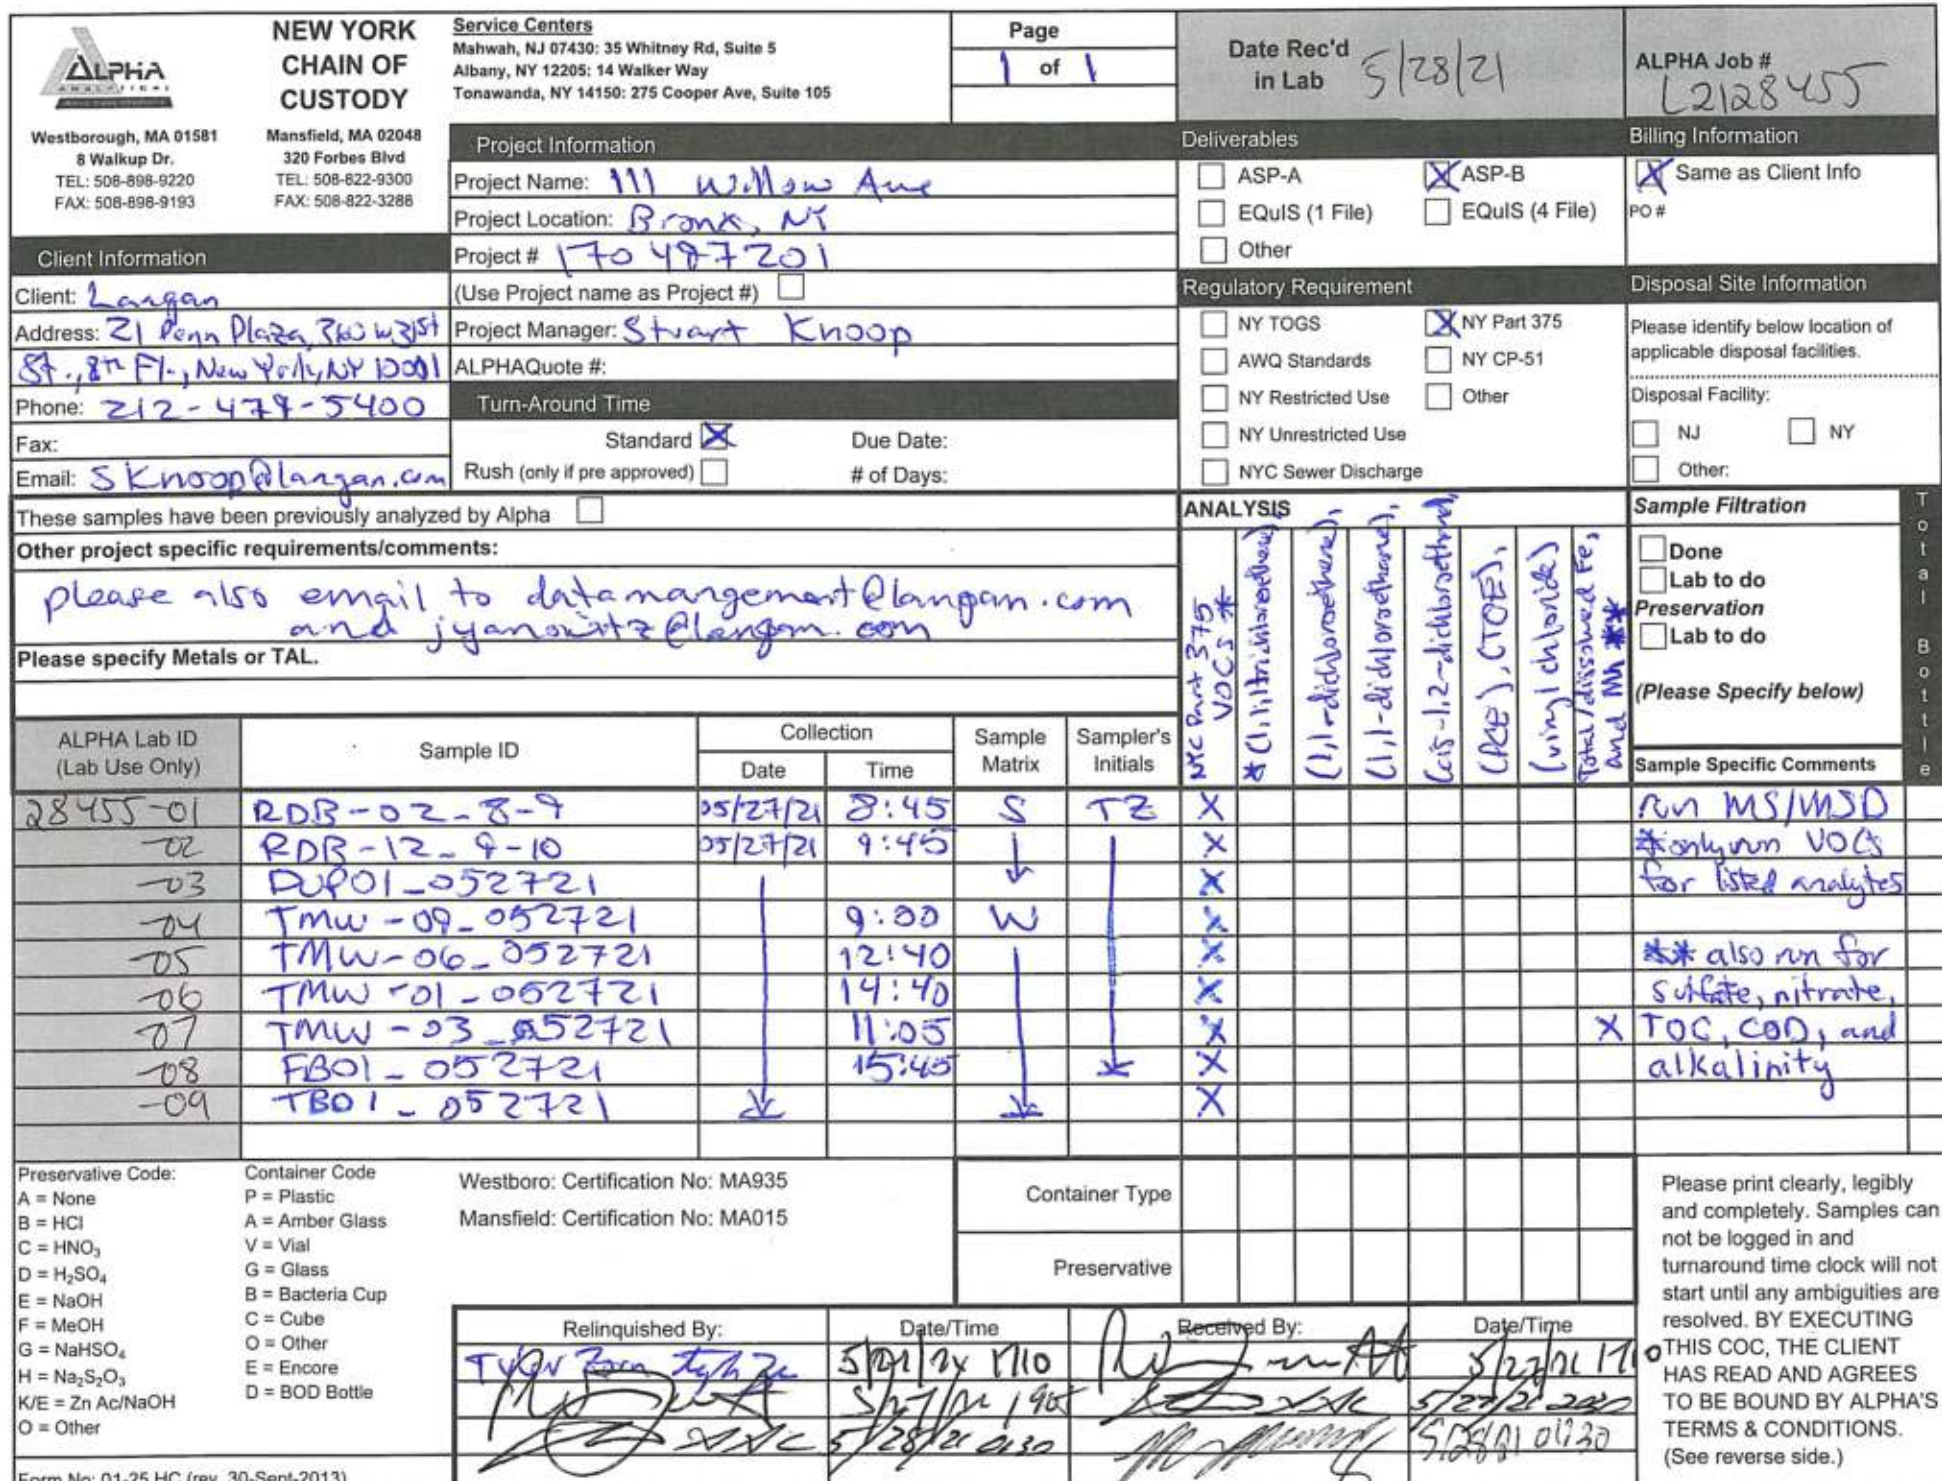 ALPHA
ANALYTICAL
Westborough, MA 01581
8 Walkup Dr.
TEL: 508-898-9220
FAX: 508-898-9193
NEW YORK
CHAIN OF
CUSTODY
Mansfield, MA 02048
320 Forbes Blvd
TEL: 508-822-9300
FAX: 508-822-3288
Service Centers
Mahwah, NJ 07430: 35 Whitney Rd, Suite 5
Albany, NY 12205: 14 Walker Way
Tonawanda, NY 14150: 275 Cooper Ave, Suite 105
Page
1 of 1
Date Rec'd
in Lab 5/28/21
ALPHA Job #
L2128455
Project Information
Project Name: 111 Willow Ave
Project Location: Bronx, NY
Project # 170487201
(Use Project name as Project #)
Project Manager: Stuart Knoop
ALPHAQuote #:
Deliverables
ASP-A X ASP-B
EQuIS (1 File) EQuIS (4 File)
Other
Billing Information
X Same as Client Info
PO #
Client Information
Client: Langan
Address: 21 Penn Plaza, 360 W 31st
St., 8th Fl., New York, NY 10001
Phone: 212-479-5400
Fax:
Email: SKnoop@langan.com
Turn-Around Time
Standard X Due Date:
Rush (only if pre approved) # of Days:
Regulatory Requirement
NY TOGS X NY Part 375
AWQ Standards NY CP-51
NY Restricted Use Other
NY Unrestricted Use
NYC Sewer Discharge
Disposal Site Information
Please identify below location of
applicable disposal facilities.
Disposal Facility:
NJ NY
Other:
These samples have been previously analyzed by Alpha
Other project specific requirements/comments:
please also email to datamangement@langan.com
and jyanowitz@langan.com
Please specify Metals or TAL.
ANALYSIS
NYC Part 375
VOCs *
* (1,1,1trichloroethene),
(1,1-dichloroethene),
(1,1-dichloroethane),
(cis-1,2-dichloroethene),
(PCE), (TCE),
(vinyl chloride)
Total/dissolved Fe,
and Mn **
Sample Filtration
Done
Lab to do
Preservation
Lab to do
(Please Specify below)
Total Bottle
ALPHA Lab ID
(Lab Use Only)
Sample ID
Collection
Date Time
Sample
Matrix
Sampler's
Initials
Sample Specific Comments
28455-01 RDB-02_8-9 05/27/21 8:45 S TZ X run MS/MSD
-02 RDB-12_9-10 05/27/21 9:45 X *only run VOCs
-03 DUP01_052721 X for listed analytes
-04 TMW-09_052721 9:00 W X
-05 TMW-06_052721 12:40 X ** also run for
-06 TMW-01_052721 14:40 X sulfate, nitrate,
-07 TMW-03_052721 11:05 X X TOC, COD, and
-08 FB01_052721 15:45 X alkalinity
-09 TB01_052721 X
Preservative Code:
A = None
B = HCl
C = HNO₃
D = H₂SO₄
E = NaOH
F = MeOH
G = NaHSO₄
H = Na₂S₂O₃
K/E = Zn Ac/NaOH
O = Other
Container Code
P = Plastic
A = Amber Glass
V = Vial
G = Glass
B = Bacteria Cup
C = Cube
O = Other
E = Encore
D = BOD Bottle
Westboro: Certification No: MA935
Mansfield: Certification No: MA015
Container Type
Preservative
Relinquished By: Date/Time Received By: Date/Time
Tyler 1710
5/28/21 0130
Please print clearly, legibly
and completely. Samples can
not be logged in and
turnaround time clock will not
start until any ambiguities are
resolved. BY EXECUTING
THIS COC, THE CLIENT
HAS READ AND AGREES
TO BE BOUND BY ALPHA'S
TERMS & CONDITIONS.
(See reverse side.)
Form No: 01-25 HC (rev. 30-Sept-2013)